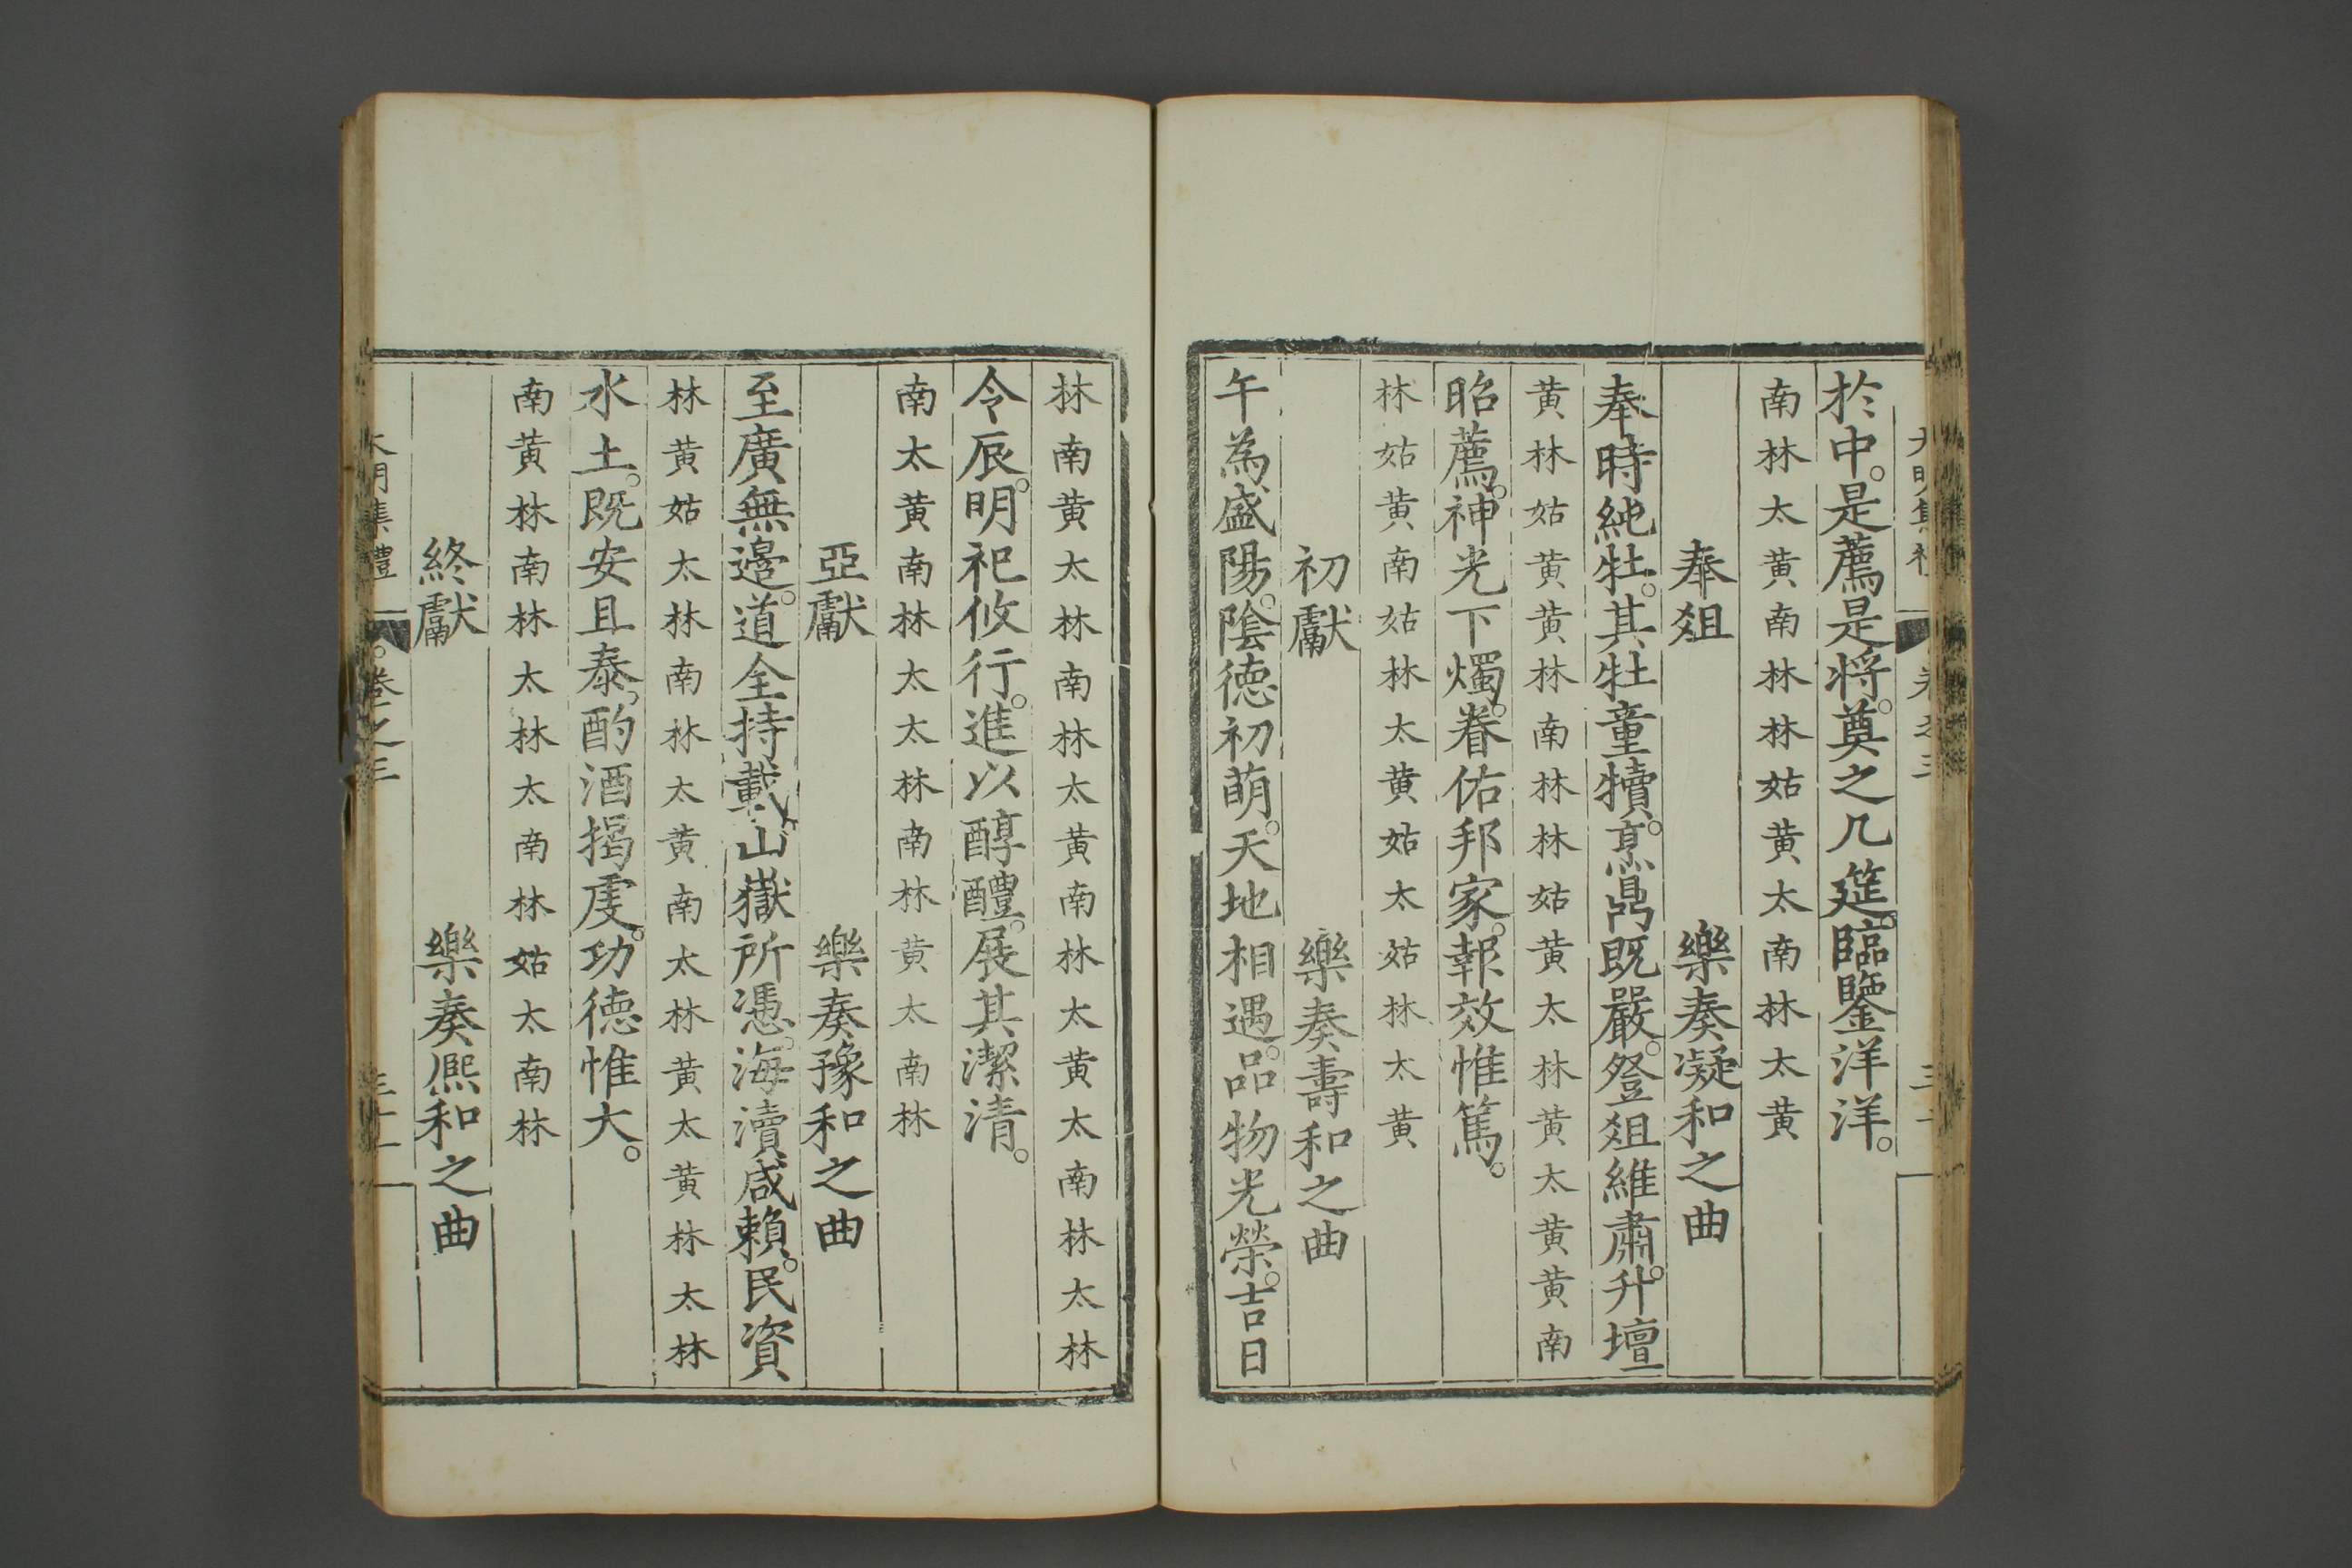 於中。是薦是将。奠之几筵。臨鑒洋洋。
南林太黄南林林姑黄太南林太黄
奉俎　樂奏凝和之曲
奉時純牡。其牡童犢。烹鼎既嚴。登俎維肅。升壇
黄林姑黄黄林南林林姑黄太林黄太黄黄南
昭薦。神光下燭。眷佑邦家。報效惟篤。
林姑黄南姑林太黄姑太姑林太黄
初獻　樂奏壽和之曲
午為盛陽。陰徳初萌。天地相遇。品物光榮。吉日
林南黄太林南林太黄南林太黄太南林太林
令辰。明祀攸行。進以醇醴。展其潔清。
南太黄南林太太林南林黄太南林
亞獻　樂奏豫和之曲
至廣無邊。道全持載。山嶽所憑。海瀆咸賴。民資
林黄姑太林南林太黄南太林黄太黄林太林
水土。既安且泰。酌酒揭虔。功徳惟大。
南黄林南林太林太南林姑太南林
終獻　樂奏熈和之曲
大明集禮　卷之三　三十一